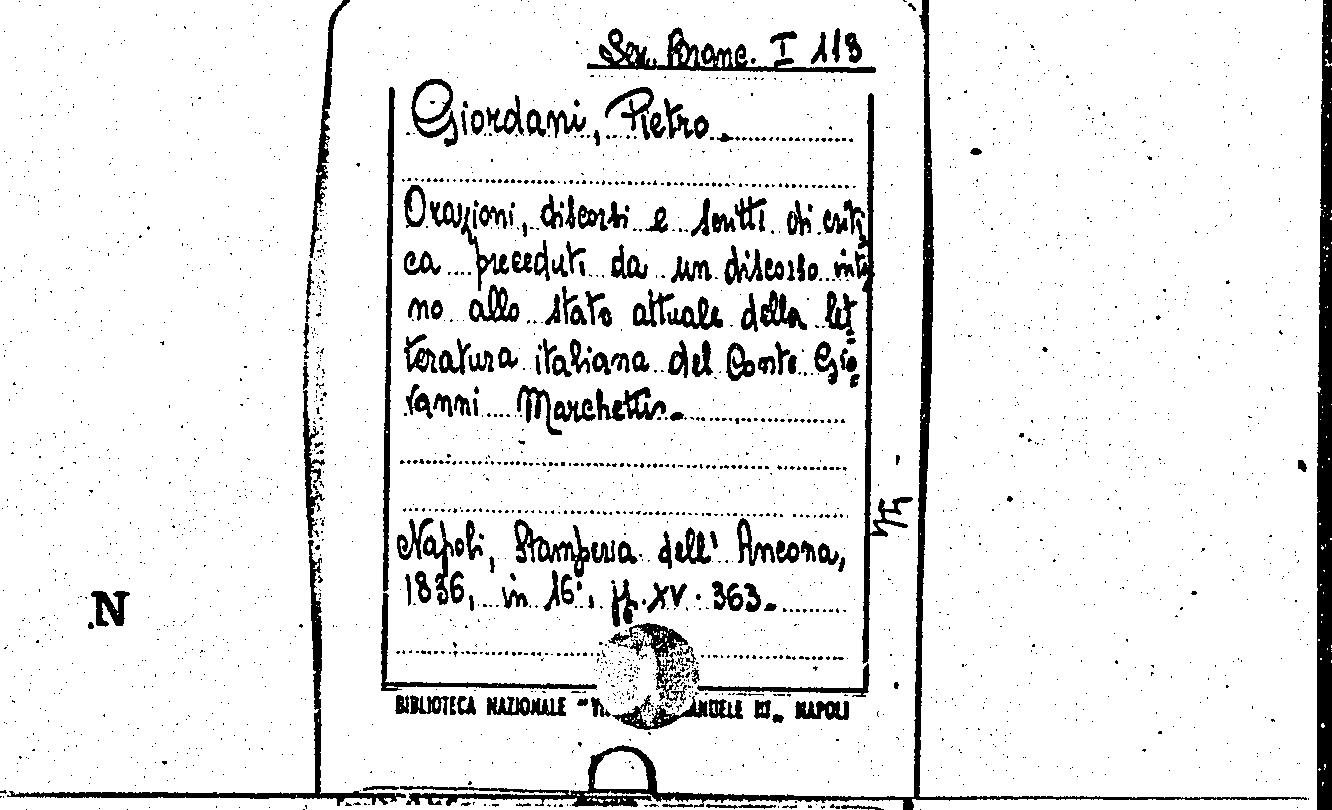 Sez. Branc. I 113
Giordani, Pietro.
Orazioni, discorsi e scritti di criti
ca preceduti da un discorso into
no allo stato attuale della let
teratura italiana del Conte Gio
vanni Marchetti.
Napoli, Stamperia dell' Ancona,
1836, in 16°, pp. XV. 363.
N
BIBLIOTECA NAZIONALE "VI ANUELE III„ NAPOLI